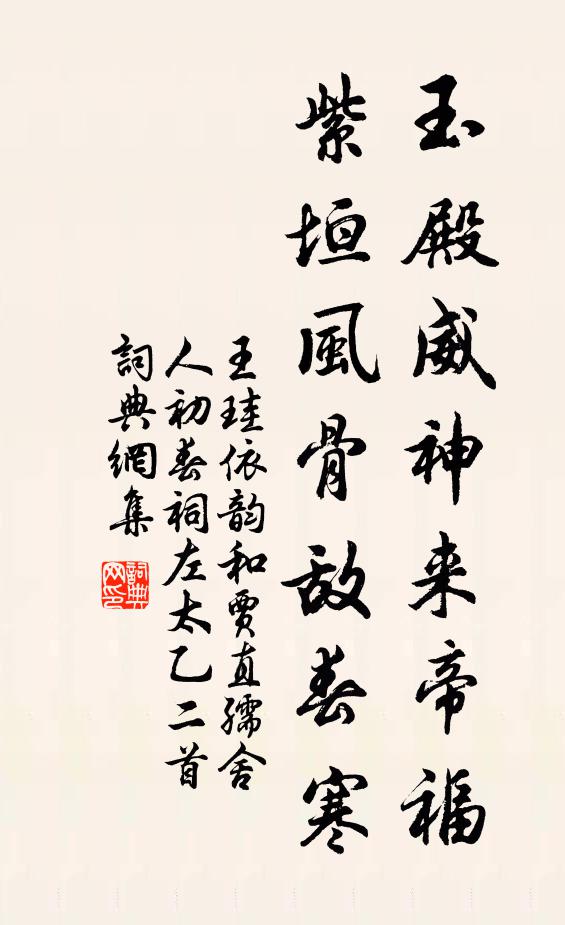 玉殿威神来帝福
紫垣風骨敌春寒
王珪依韵和賈直孺舍
人初春祠左太乙二首
詞典網集
詞典
网印